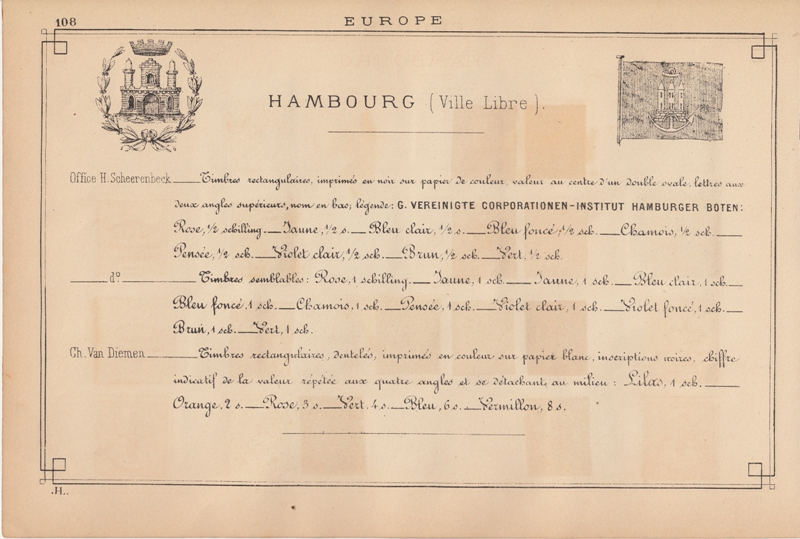 108
EUROPE
HAMBOURG (Ville Libre).
Office H. Scheerenbeck — Timbres rectangulaires, imprimés en noir sur papier de couleur, valeur au centre d'un double ovale, lettres aux
deux angles supérieurs, nom en bas; légende: G. VEREINIGTE CORPORATIONEN-INSTITUT HAMBURGER BOTEN:
Rose, ½ schilling — Jaune, ½ s. — Bleu clair, ½ s. — Bleu foncé, ½ sch. — Chamois, ½ sch. —
Pensée, ½ sch. — Violet clair, ½ sch. — Brun, ½ sch. — Vert, ½ sch.
— do — Timbres semblables: Rose, 1 schilling. — Jaune, 1 sch. — Jaune, 1 sch. — Bleu clair, 1 sch. —
Bleu foncé, 1 sch. — Chamois, 1 sch. — Pensée, 1 sch. — Violet clair, 1 sch. — Violet foncé, 1 sch. —
Brun, 1 sch. — Vert, 1 sch.
Ch. Van Diemen — Timbres rectangulaires, dentelés, imprimés en couleur sur papier blanc, inscriptions noires, chiffre
indicatif de la valeur répétée aux quatre angles et se détachant au milieu: Lilas, 1 sch. —
Orange, 2 s. — Rose, 3 s. — Vert, 4 s. — Bleu, 6 s. — Vermillon, 8 s.
.H..